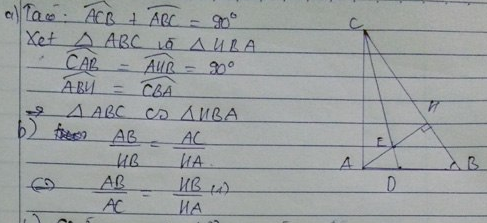 a) Ta có: ACB + ABC = 90°
Xét △ ABC và △ HBA
CAB = AHB = 90°
ABH = CBA
⇒ △ ABC ∽ △ HBA
b) AB/HB = AC/HA
⇔ AB/AC = HB/HA (1)
C
H
E
A
B
D